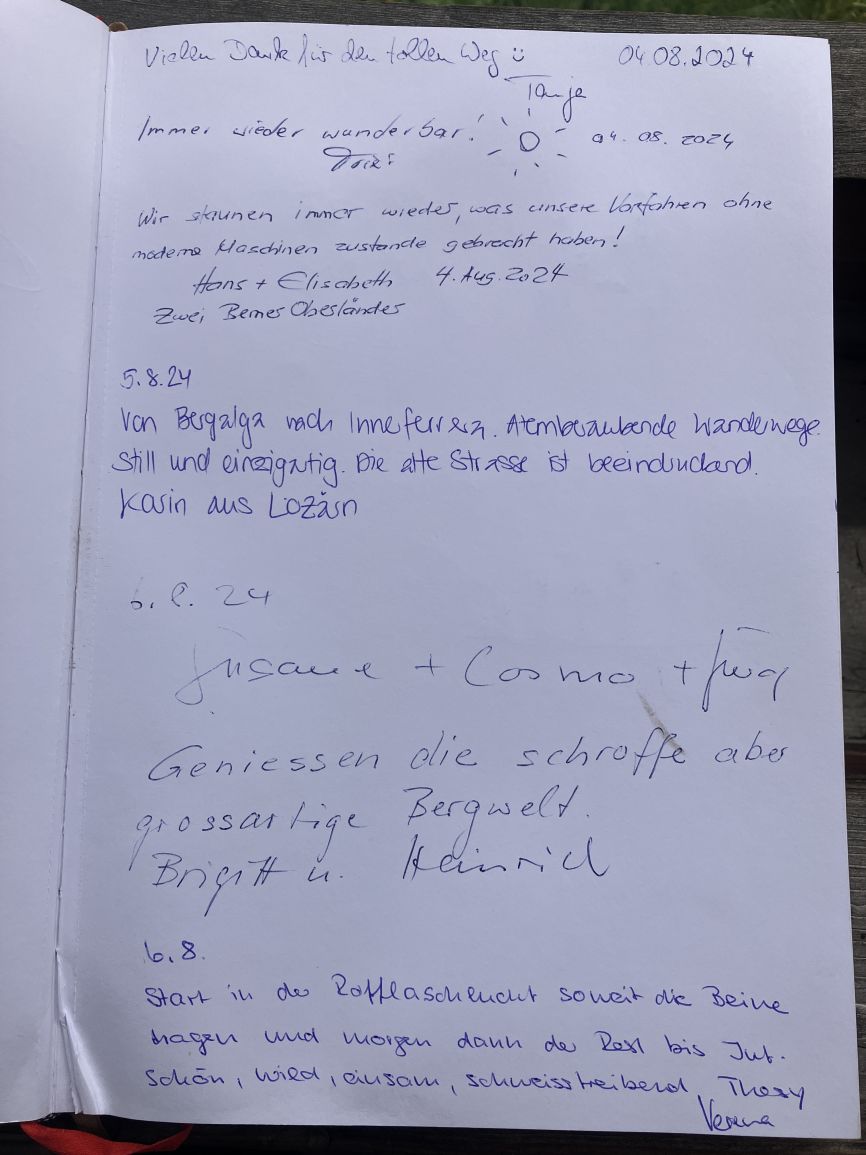 Vielen Dank für den tollen Weg 04.08.2024
Tanja
Immer wieder wunderbar! 04. 08. 2024
Wir staunen immer wieder, was unsere Vorfahren ohne
moderne Maschinen zustande gebracht haben!
Hans + Elisabeth 4. Aug. 2024
Zwei Berner Oberländer
5.8.24
Von Bergalga nach Innerferrera. Atemberaubende Wanderwege.
Still und einzigartig. Die alte Strasse ist beeindruckend.
Karin aus Lozärn
6. 8. 24
Susanne + Cosmo + Jürg
Geniessen die schroffe aber
grossartige Bergwelt.
Brigitt u. Heinrich
6.8.
Start in der Rofflaschlucht soweit die Beine
tragen und morgen dann der Rest bis Juf.
Schön, wild, einsam, schweisstreibend,
Verena